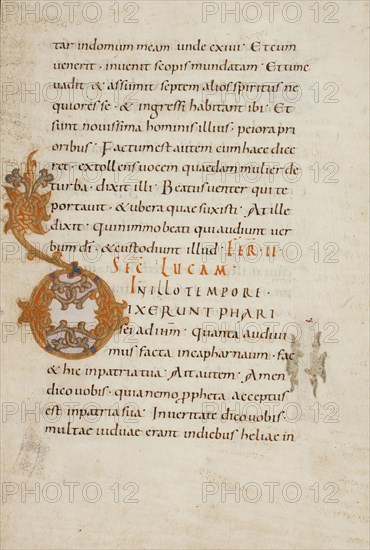 tar indomum meam unde exivi· Et cum
venerit· invenit scopis mundatam· Et tunc
vadit & assumit septem alios spiritus ne
quiores se· & ingressi habitant ibi· Et
sunt novissima hominis illius· peiora pri
oribus· Factum est autem cum haec dice
ret· extollens vocem quaedam mulier de
turba· dixit illi· Beatus venter qui te
portauit· & ubera quae suxisti· At ille
dixit· Quinimmo beati qui audiunt ver
bum dī· & custodiunt illud· FER· II
SEC̄ LUCAM·
IN ILLO TEMPORE·
DIXERUNT PHARI
sei ad ium̄· quanta audiui
mus facta in capharnaum· fac
& hic in patria tua· Ait autem· Amen
dico uobis· quia nemo propheta acceptus
est in patria sua· In ueritate dico uobis·
multae uiduae erant in diebus heliae in
PHOTO 12